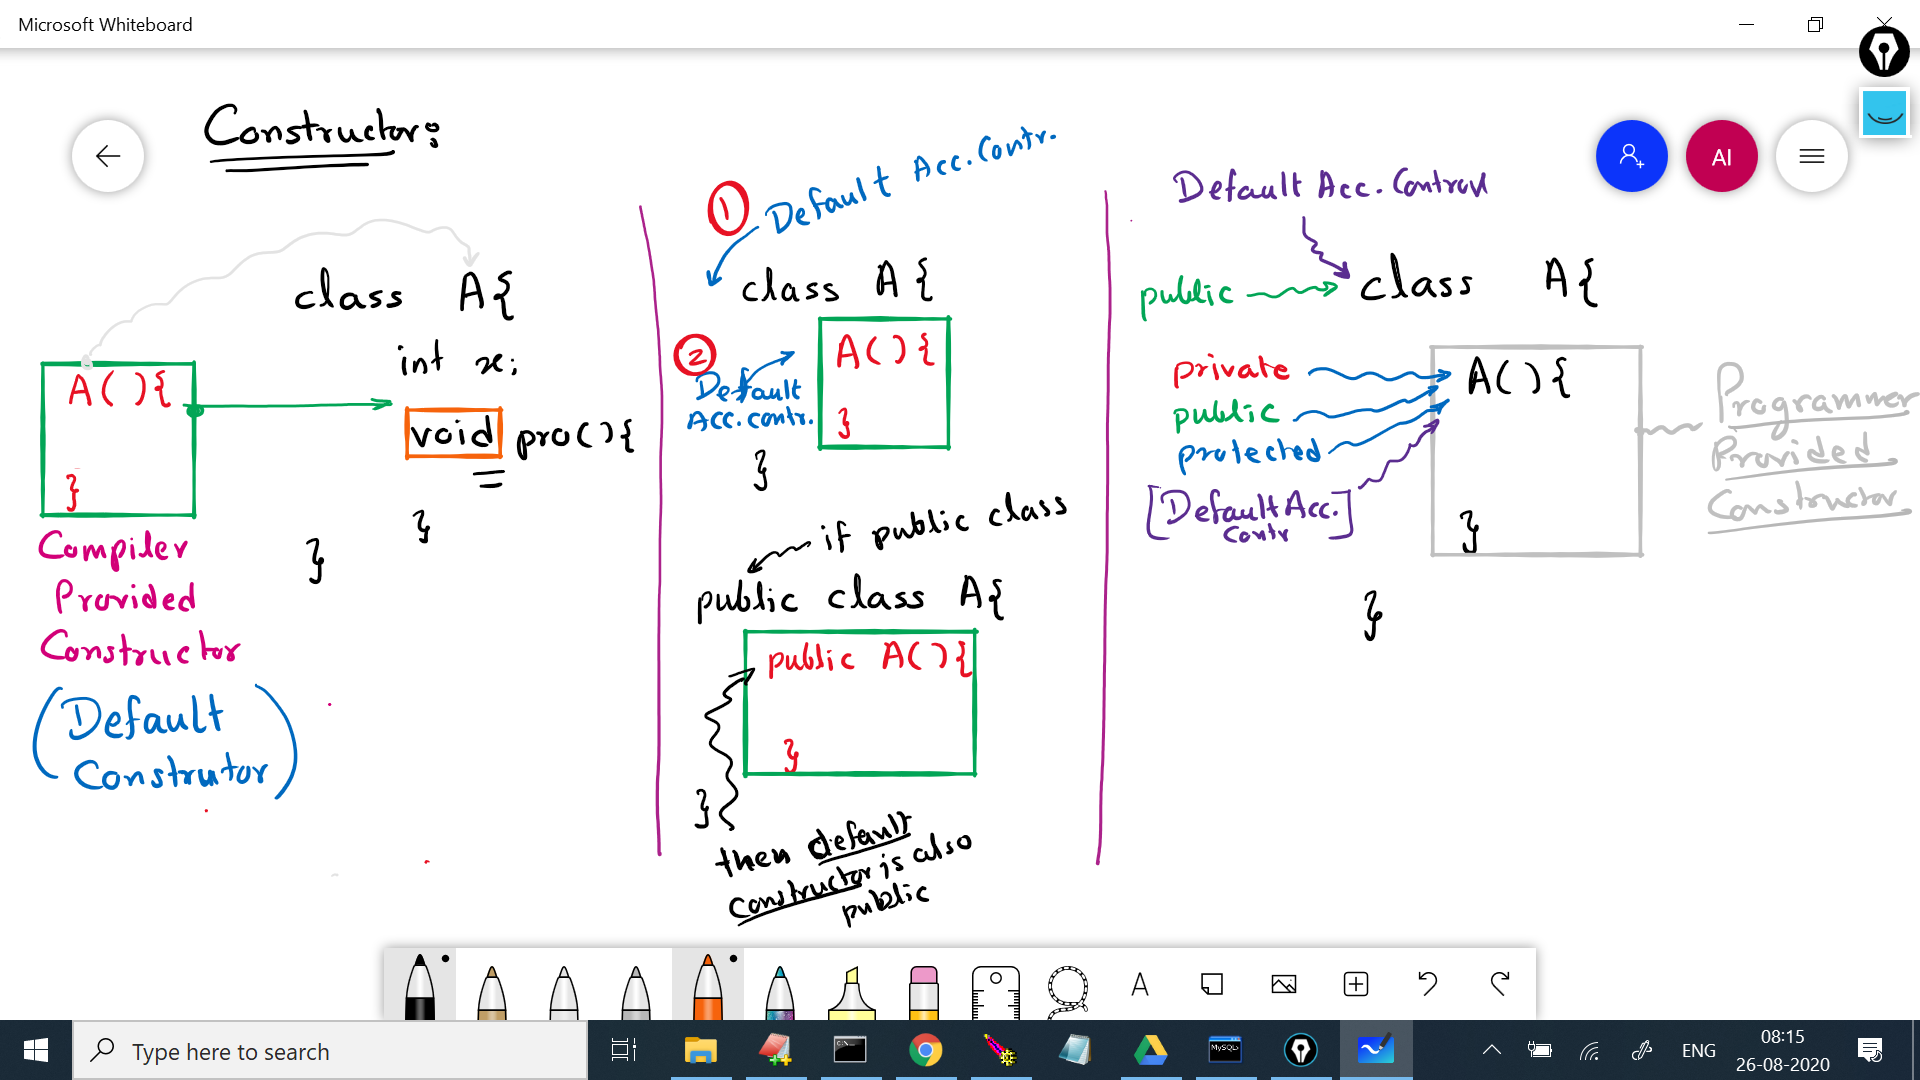 Microsoft Whiteboard
Constructor:
AI
class A{
int x;
void pro(){
}
}
A(){
}
Compiler
Provided
Constructor
(Default
Construtor)
1
Default Acc. Contr.
class A{
2
Default
Acc. contr.
A(){
}
}
if public class
public class A{
public A(){
}
}
then default
constructor is also
public
Default Acc. Control
public
class A{
private
public
protected
[Default Acc.
Contr]
A(){
}
}
Programmer
Provided
Constructor
A
Type here to search
C:\_
MySQL
ENG
08:15
26-08-2020